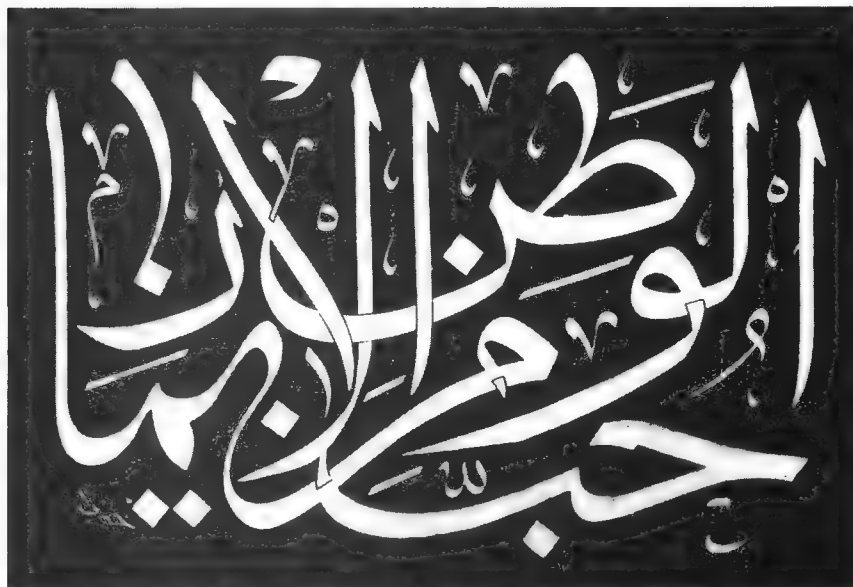 حب الوطن من الإيمان